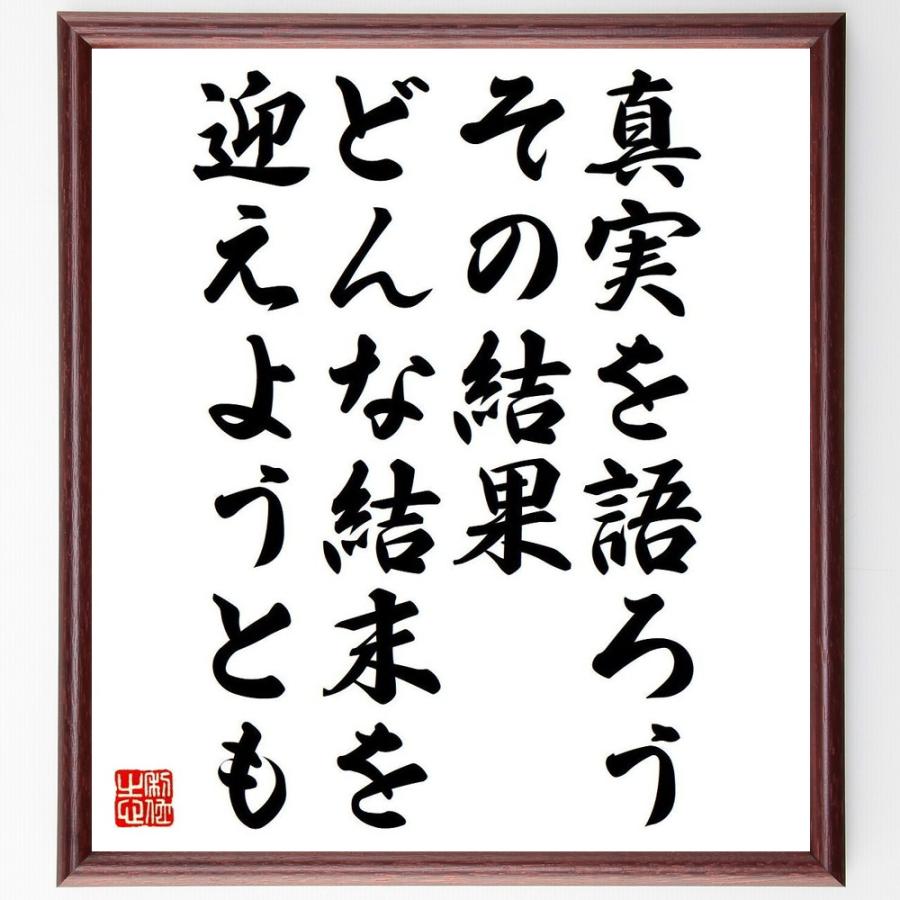 真実を語ろう
その結果
どんな結末を
迎えようとも